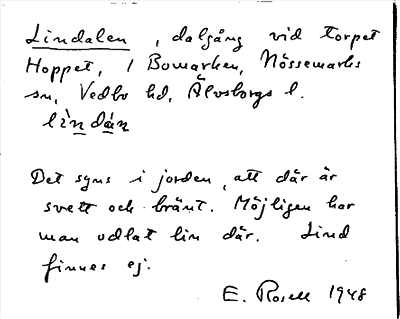 Lindalen, dalgång vid torpet
Hoppet, i Bomarken, Nössemarks
sn, Vedbo hd, Älvsborgs l.
lìndán
Det syns i jorden, att där är
svett och bränt. Möjligen har
man odlat lin där. Lind
finnes ej.
E. Rosell 1948